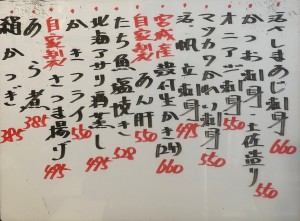 活〆しまあじ刺身
かつお刺身・土佐造り 550
オニアジ刺身 550
マツカワかれい刺身 660
活・帆立刺身 495
宮城産 殻付生かき(2ヶ) 660
自家製 あん肝 550
たち魚塩焼き 528
北海アサリ酒蒸し 495
かきフライ 550
自家製 さつま揚げ 495
あら煮 385
絹かつぎ 385